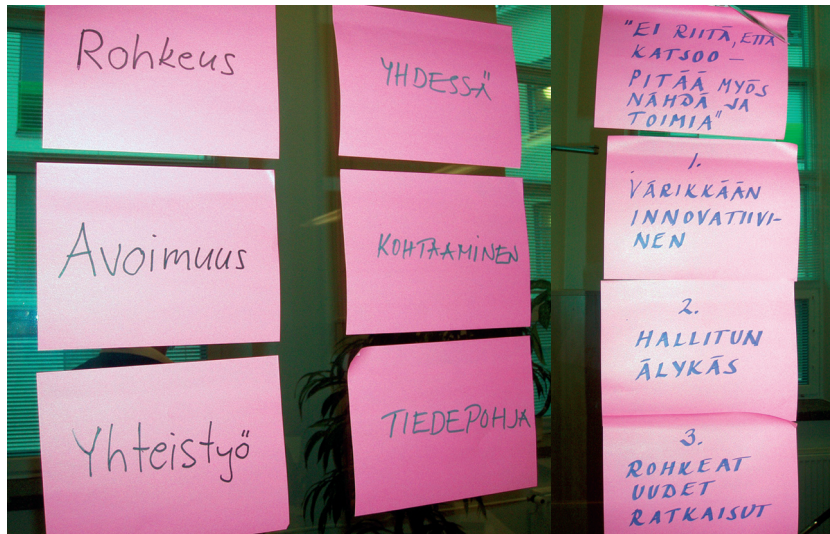 Rohkeus
Avoimuus
Yhteistyö
YHDESSÄ
KOHTAAMINEN
TIEDEPOHJA
"EI RIITÄ, ETTÄ
KATSOO –
PITÄÄ MYÖS
NÄHDÄ JA
TOIMIA"
1.
VÄRIKKÄÄN
INNOVATIIVI-
NEN
2.
HALLITUN
ÄLYKÄS
3.
ROHKEAT
UUDET
RATKAISUT